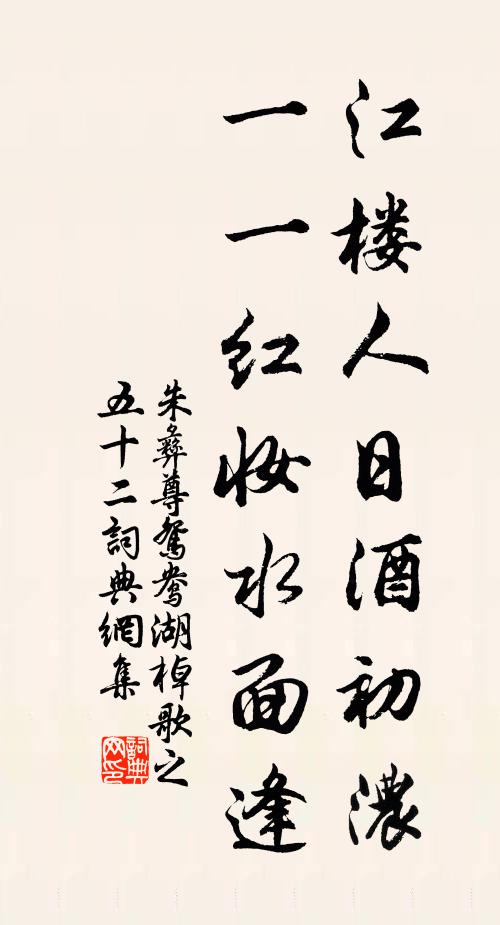 江楼人日酒初濃
一一红妆水面逢
朱彝尊鴛鴦湖棹歌之
五十二詞典網集
詞典网印